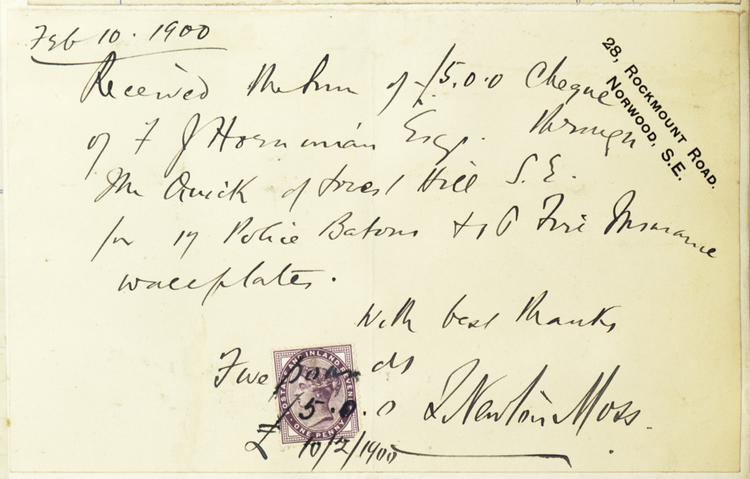 Feb 10. 1900
28, ROCKMOUNT ROAD.
NORWOOD, S.E.
Received the Sum of £5.0.0 Cheque
of F J Horniman Esqr. through
Mr Quick of Forest Hill S.E.
for 17 Police Batons & 16 Fire Insurance
wallplates.
With best thanks
Five pounds
£5.0.0
Newton Moss.
10/2/1900
POSTAGE AND INLAND REVENUE
ONE PENNY